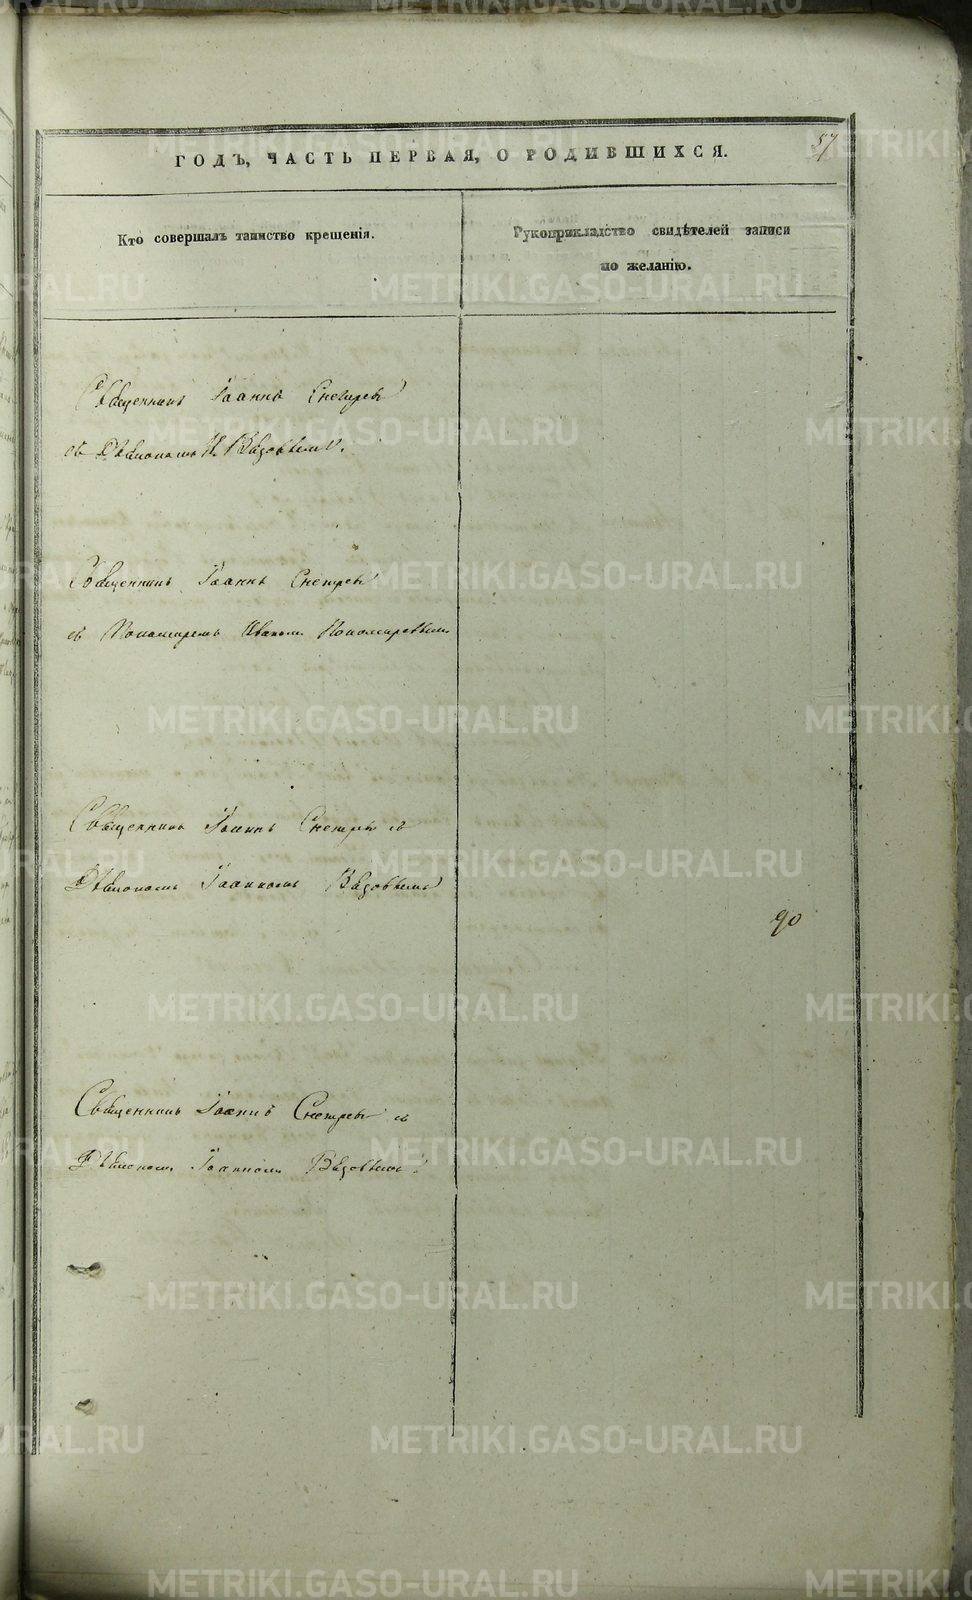 57
ГОДЪ, ЧАСТЬ ПЕРВАЯ, О РОДИВШИХСЯ.
Кто совершалъ таинство крещенія.
Рукоприкладство свидѣтелей записи
по желанію.
Священникъ Іоаннъ Снегирев
съ Діакономъ И.
Священникъ Іоаннъ Снегирев
съ Пономаремъ Иваномъ Пономаревым
Священникъ Іоаннъ Снегирев съ
Діакономъ Іоанномъ
90
Священникъ Іоаннъ Снегирев съ
Діакономъ Іоанномъ
METRIKI.GASO-URAL.RU